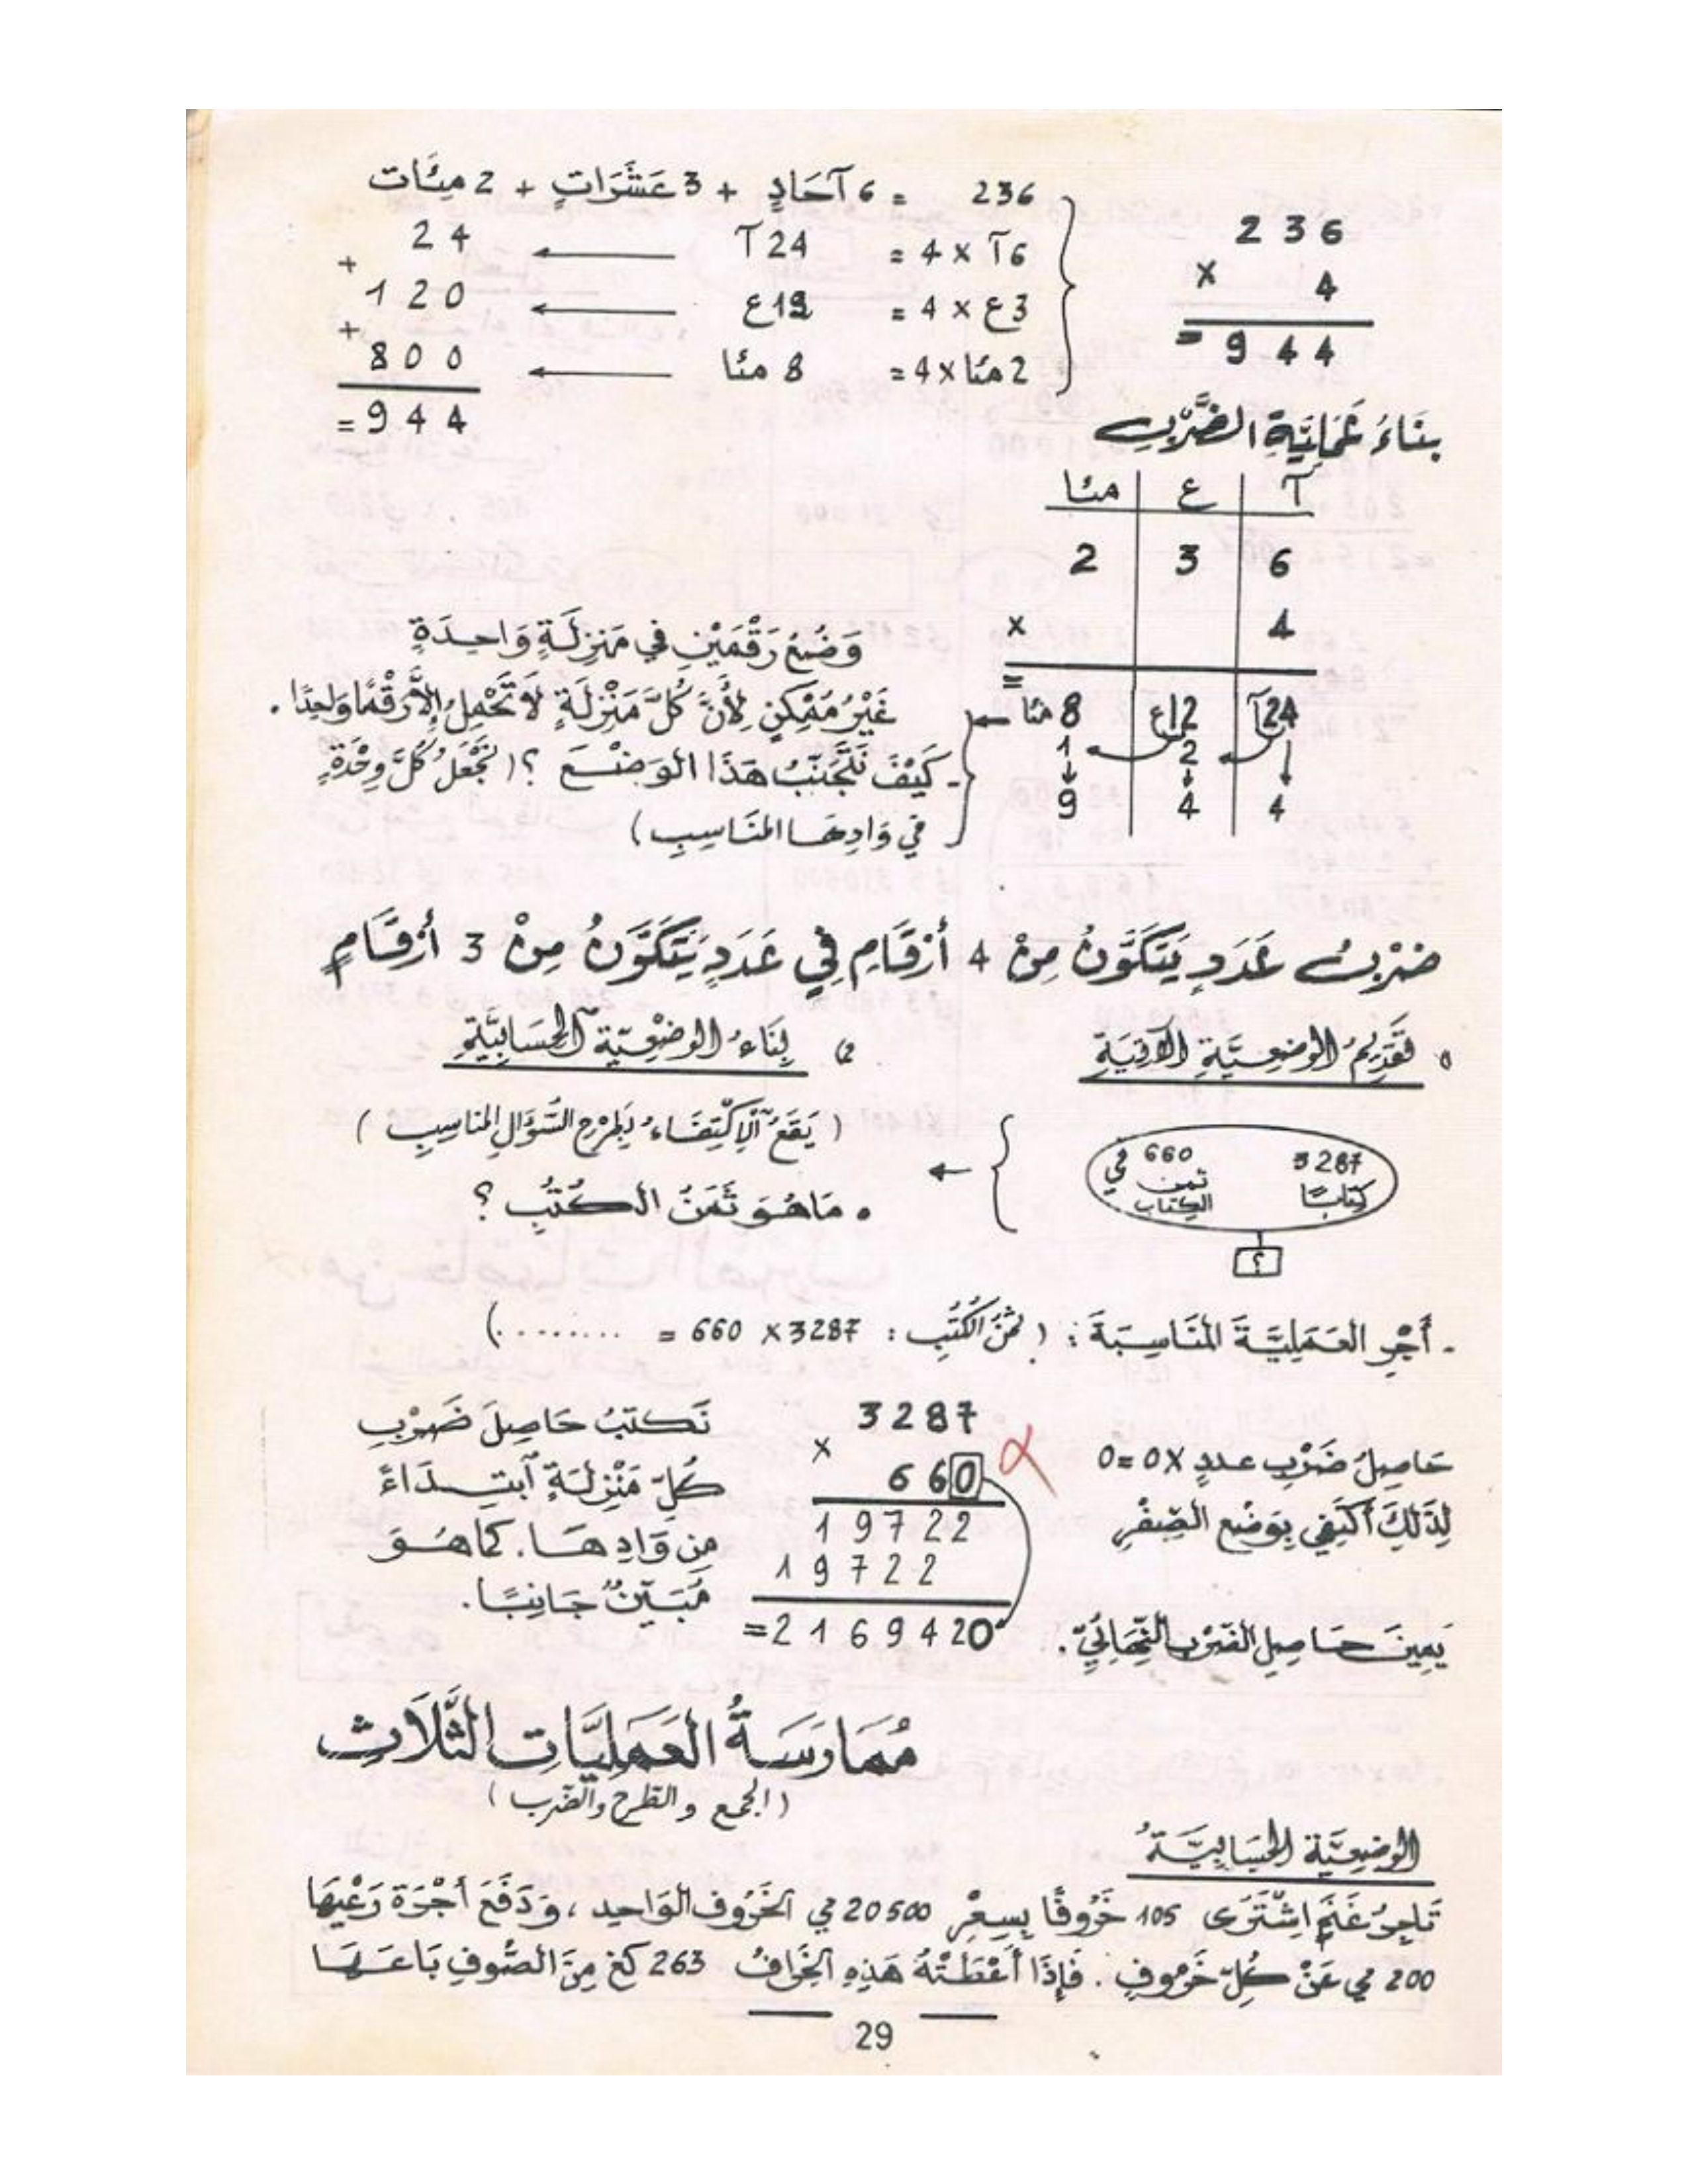 236 = 6 آحَادٍ + 3 عَشَرَاتٍ + 2 مِئَات
6آ × 4 = 24آ ← 24
+
3ع × 4 = 12ع ← 120
+
2مئا × 4 = 8 مئا ← 800
= 944
236
× 4
= 944
بِنَاءُ عَمَلِيَّةِ الضَّرْبِ
آ ع مئا
2 3 6
× 4
=
24آ 12ع 8 مئا ←
1 2
9 4 4
وَضْعُ رَقْمَيْنِ فِي مَنْزِلَةٍ وَاحِدَةٍ
غَيْرُ مُمْكِنٍ لِأَنَّ كُلَّ مَنْزِلَةٍ لَا تَحْمِلُ إِلَّا رَقْمًا وَاحِدًا.
- كَيْفَ نَتَجَنَّبُ هَذَا الوَضْعَ ؟ (نَجْعَلُ كُلَّ وِحْدَةٍ
فِي وَادِهَا المُنَاسِبِ)
ضَرْبُ عَدَدٍ يَتَكَوَّنُ مِنْ 4 أَرْقَامٍ فِي عَدَدٍ يَتَكَوَّنُ مِنْ 3 أَرْقَامٍ
تَقْدِيمُ الوَضْعِيَّةِ الآتِيَةِ
2) بِنَاءُ الوَضْعِيَّةِ الحِسَابِيَّةِ
3287 كِتَابًا
660 في ثمن الكتاب
؟
(يَقَعُ الِاكْتِفَاءُ بِطَرْحِ السُّؤَالِ المُنَاسِبِ)
• مَا هُوَ ثَمَنُ الكُتُبِ ؟
- أَجْرِ العَمَلِيَّةَ المُنَاسِبَةَ : (ثَمَنُ الكُتُبِ : 3287 × 660 = ........)
حَاصِلُ ضَرْبِ عددٍ × 0 = 0
لِذَلِكَ أَكْتَفِي بِوَضْعِ الصِّفْرِ
يَمِينَ حَاصِلِ الضَّرْبِ النِّهَائِيِّ.
3287
×
660
19722
19722
=2169420
نَكْتُبُ حَاصِلَ ضَرْبِ
كُلِّ مَنْزِلَةٍ ابْتِدَاءً
مِنْ وَادِهَا. كَمَا هُوَ
مُبَيَّنٌ جَانِبًا.
مُمَارَسَةُ العَمَلِيَّاتِ الثَّلَاثِ
(الجمع والطرح والضرب)
الوَضْعِيَّةُ الحِسَابِيَّةُ
تَاجِرُ غَنَمٍ اِشْتَرَى 105 خَرُوفًا بِسِعْرِ 20500 مي الخَرُوف الوَاحِد ، وَدَفَعَ أُجْرَةَ رَعْيِهَا
200 مي عَنْ كُلِّ خَرُوفٍ . فَإِذَا أَعْطَتْهُ هَذِهِ الخِرَافُ 263 كغ مِنَ الصُّوفِ بَاعَهَا
29